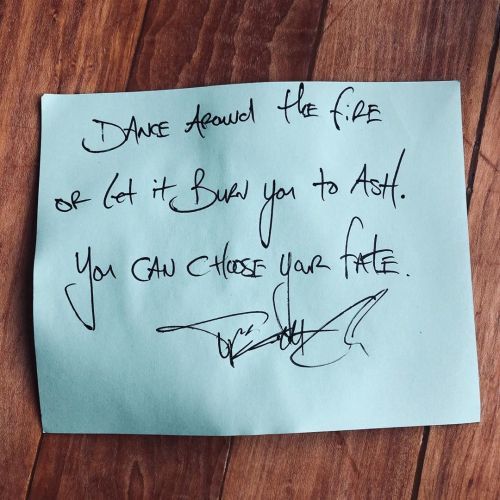 DANCE AROUND the fiRE
OR Let it BURN you to ASH.
you CAN CHOOSE youR fATE.